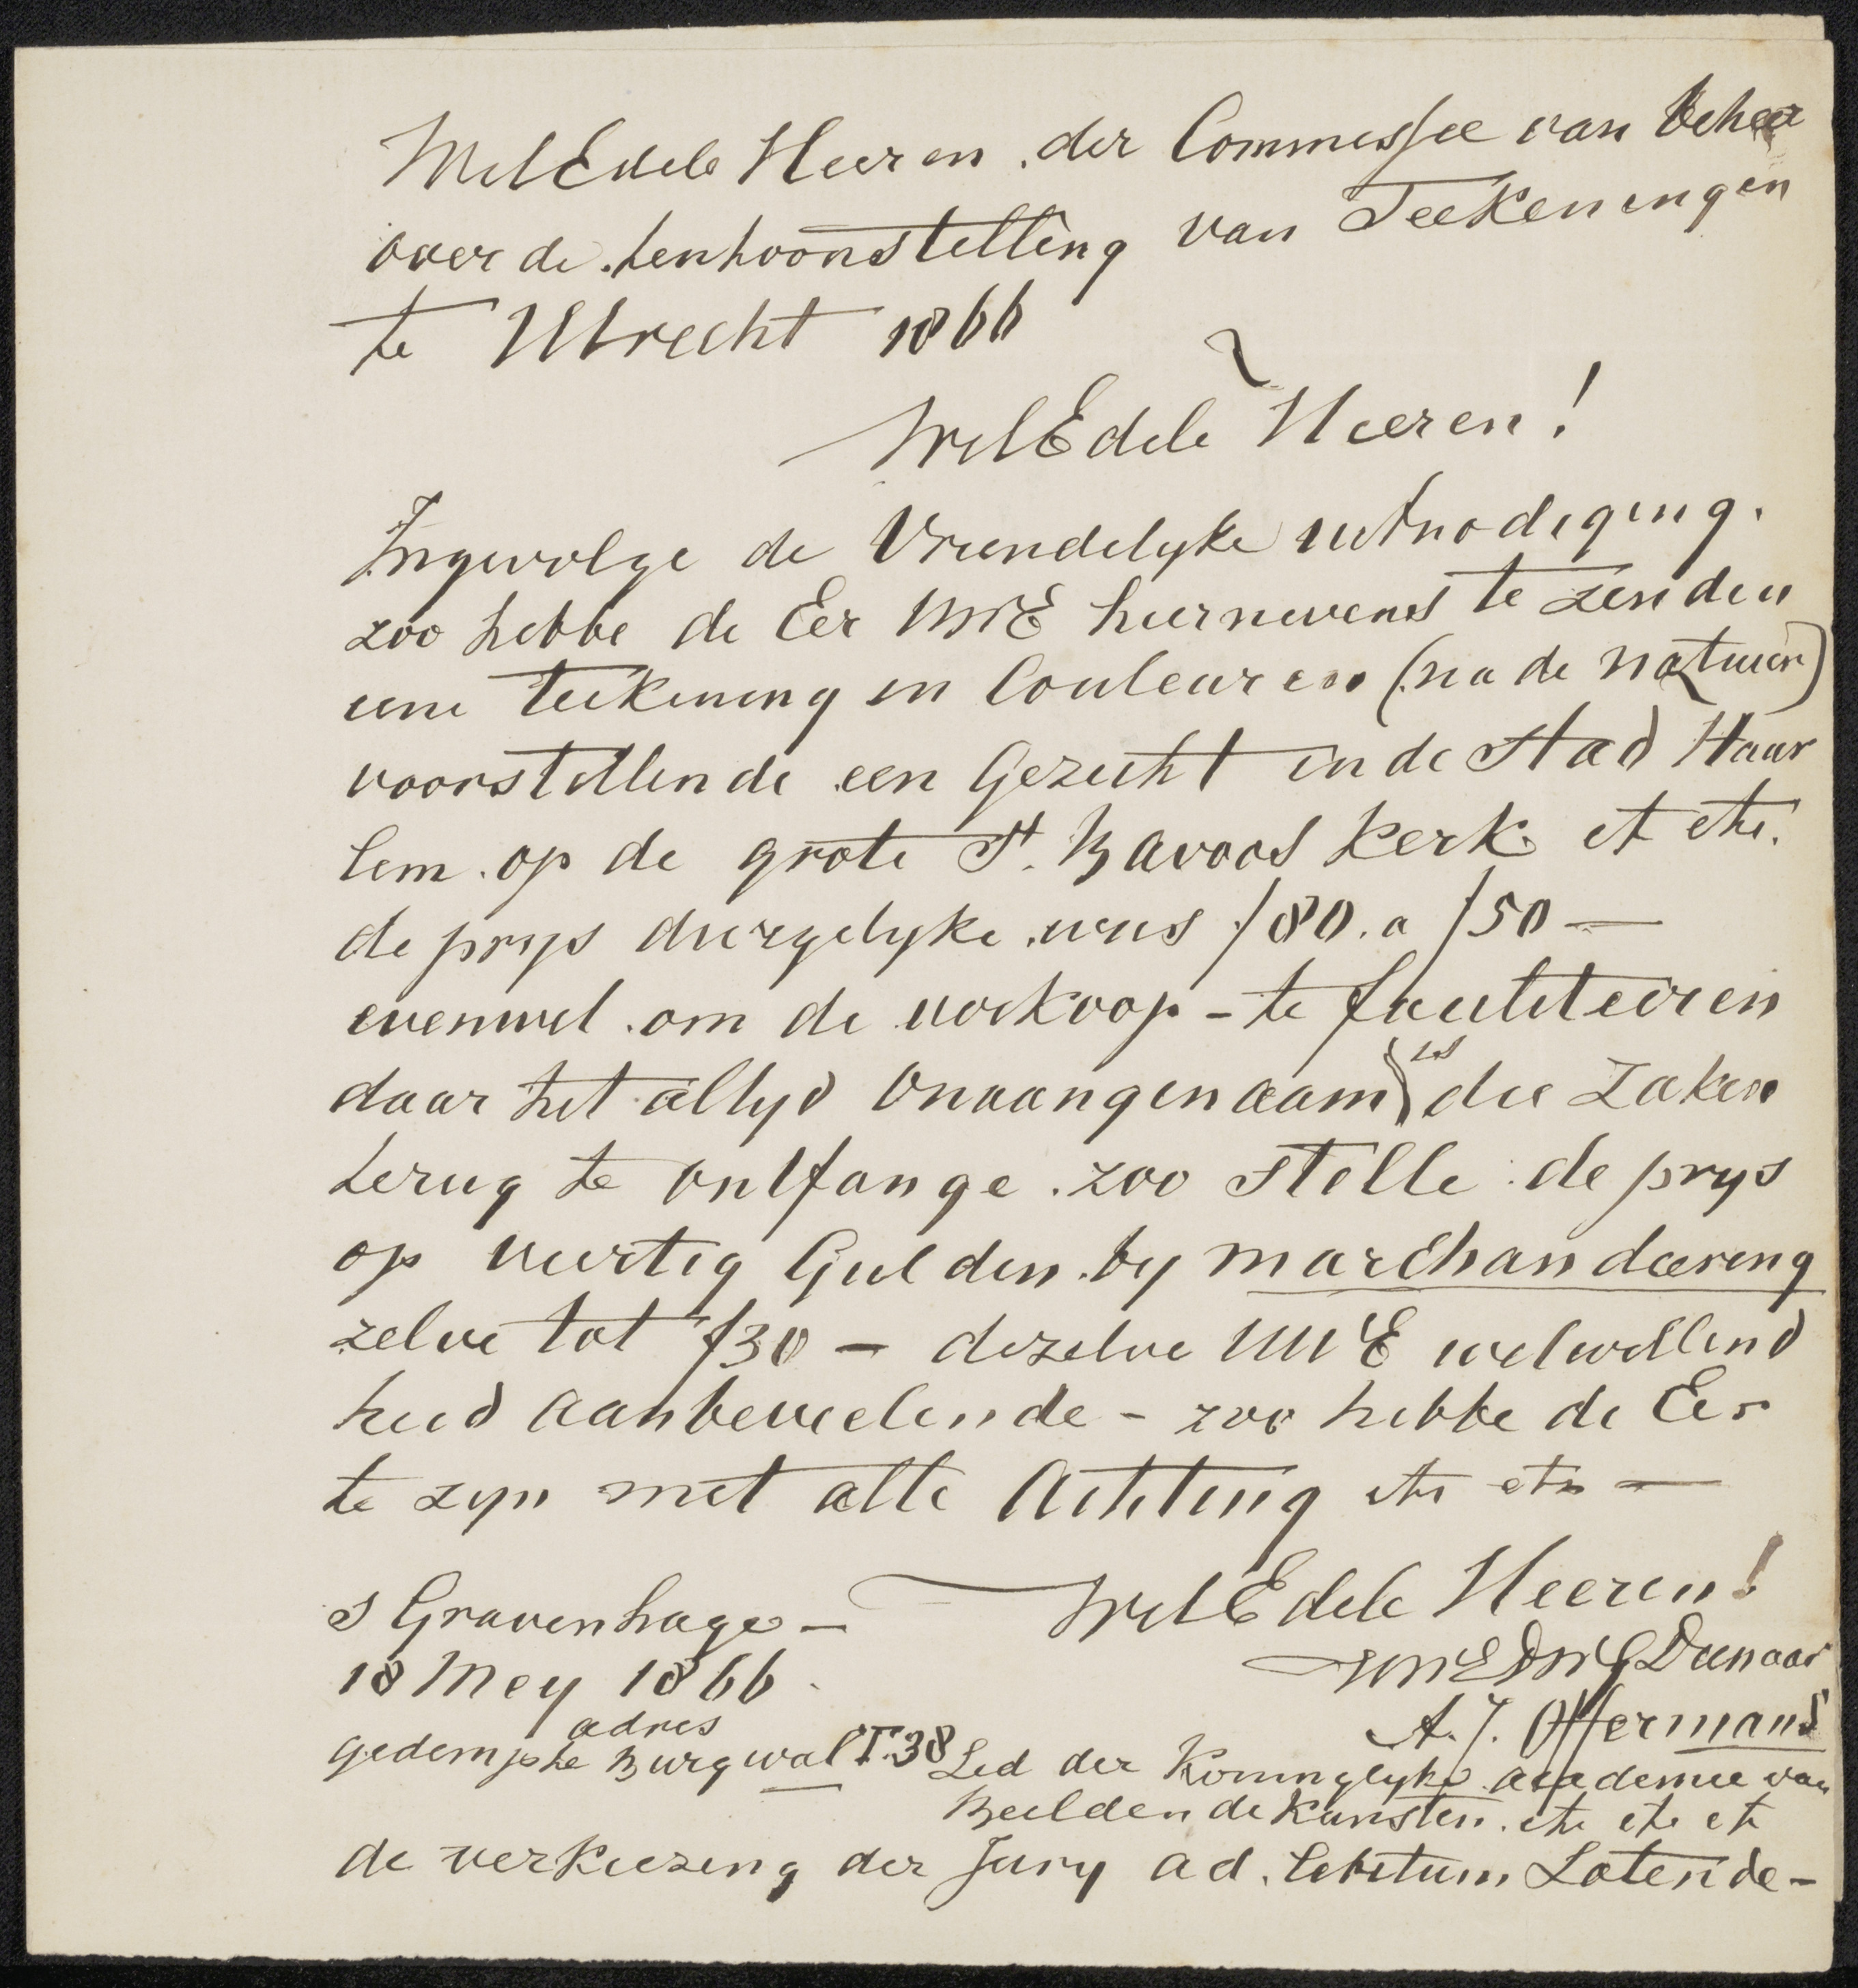 WelEdele Heeren der Commissie van beheer
over de tenhoonstelling van Teekeningen
te Utrecht 1866
WelEdele Heeren!
Ingevolge de Vriendelyke uitnodiging.
zoo hebbe de Eer UWE hiernevens te zenden
eene teekening in Couleuren (na de natuur)
voorstellende een Gezicht in de stad Haar
lem. op de grote St. Bavoos kerk et etc.
de prys diergelyke was ƒ80. a ƒ50 —
evenwel om de verkoop - te faciliteeren
daar het altyd onaangenaam is die zaken
terug te ontfange. zoo stelle de prys
op veertig Gulden. by marchandeering
zelve tot ƒ30 — dezelve UWE welwillend
heid aanbeveelende - zoo hebbe de Eer
te zyn met alle Achting etc etc —
WelEdele Heeren!
s Gravenhage —
UWEDWG Dienaar
18 Mey 1866.
A. J. Offermans
adres
gedempte Burgwal T. 38
Lid der Koninglyke academie van
Beeldende Kunsten. etc etc et
de verkiezing der Jury ad. libitum Latende -